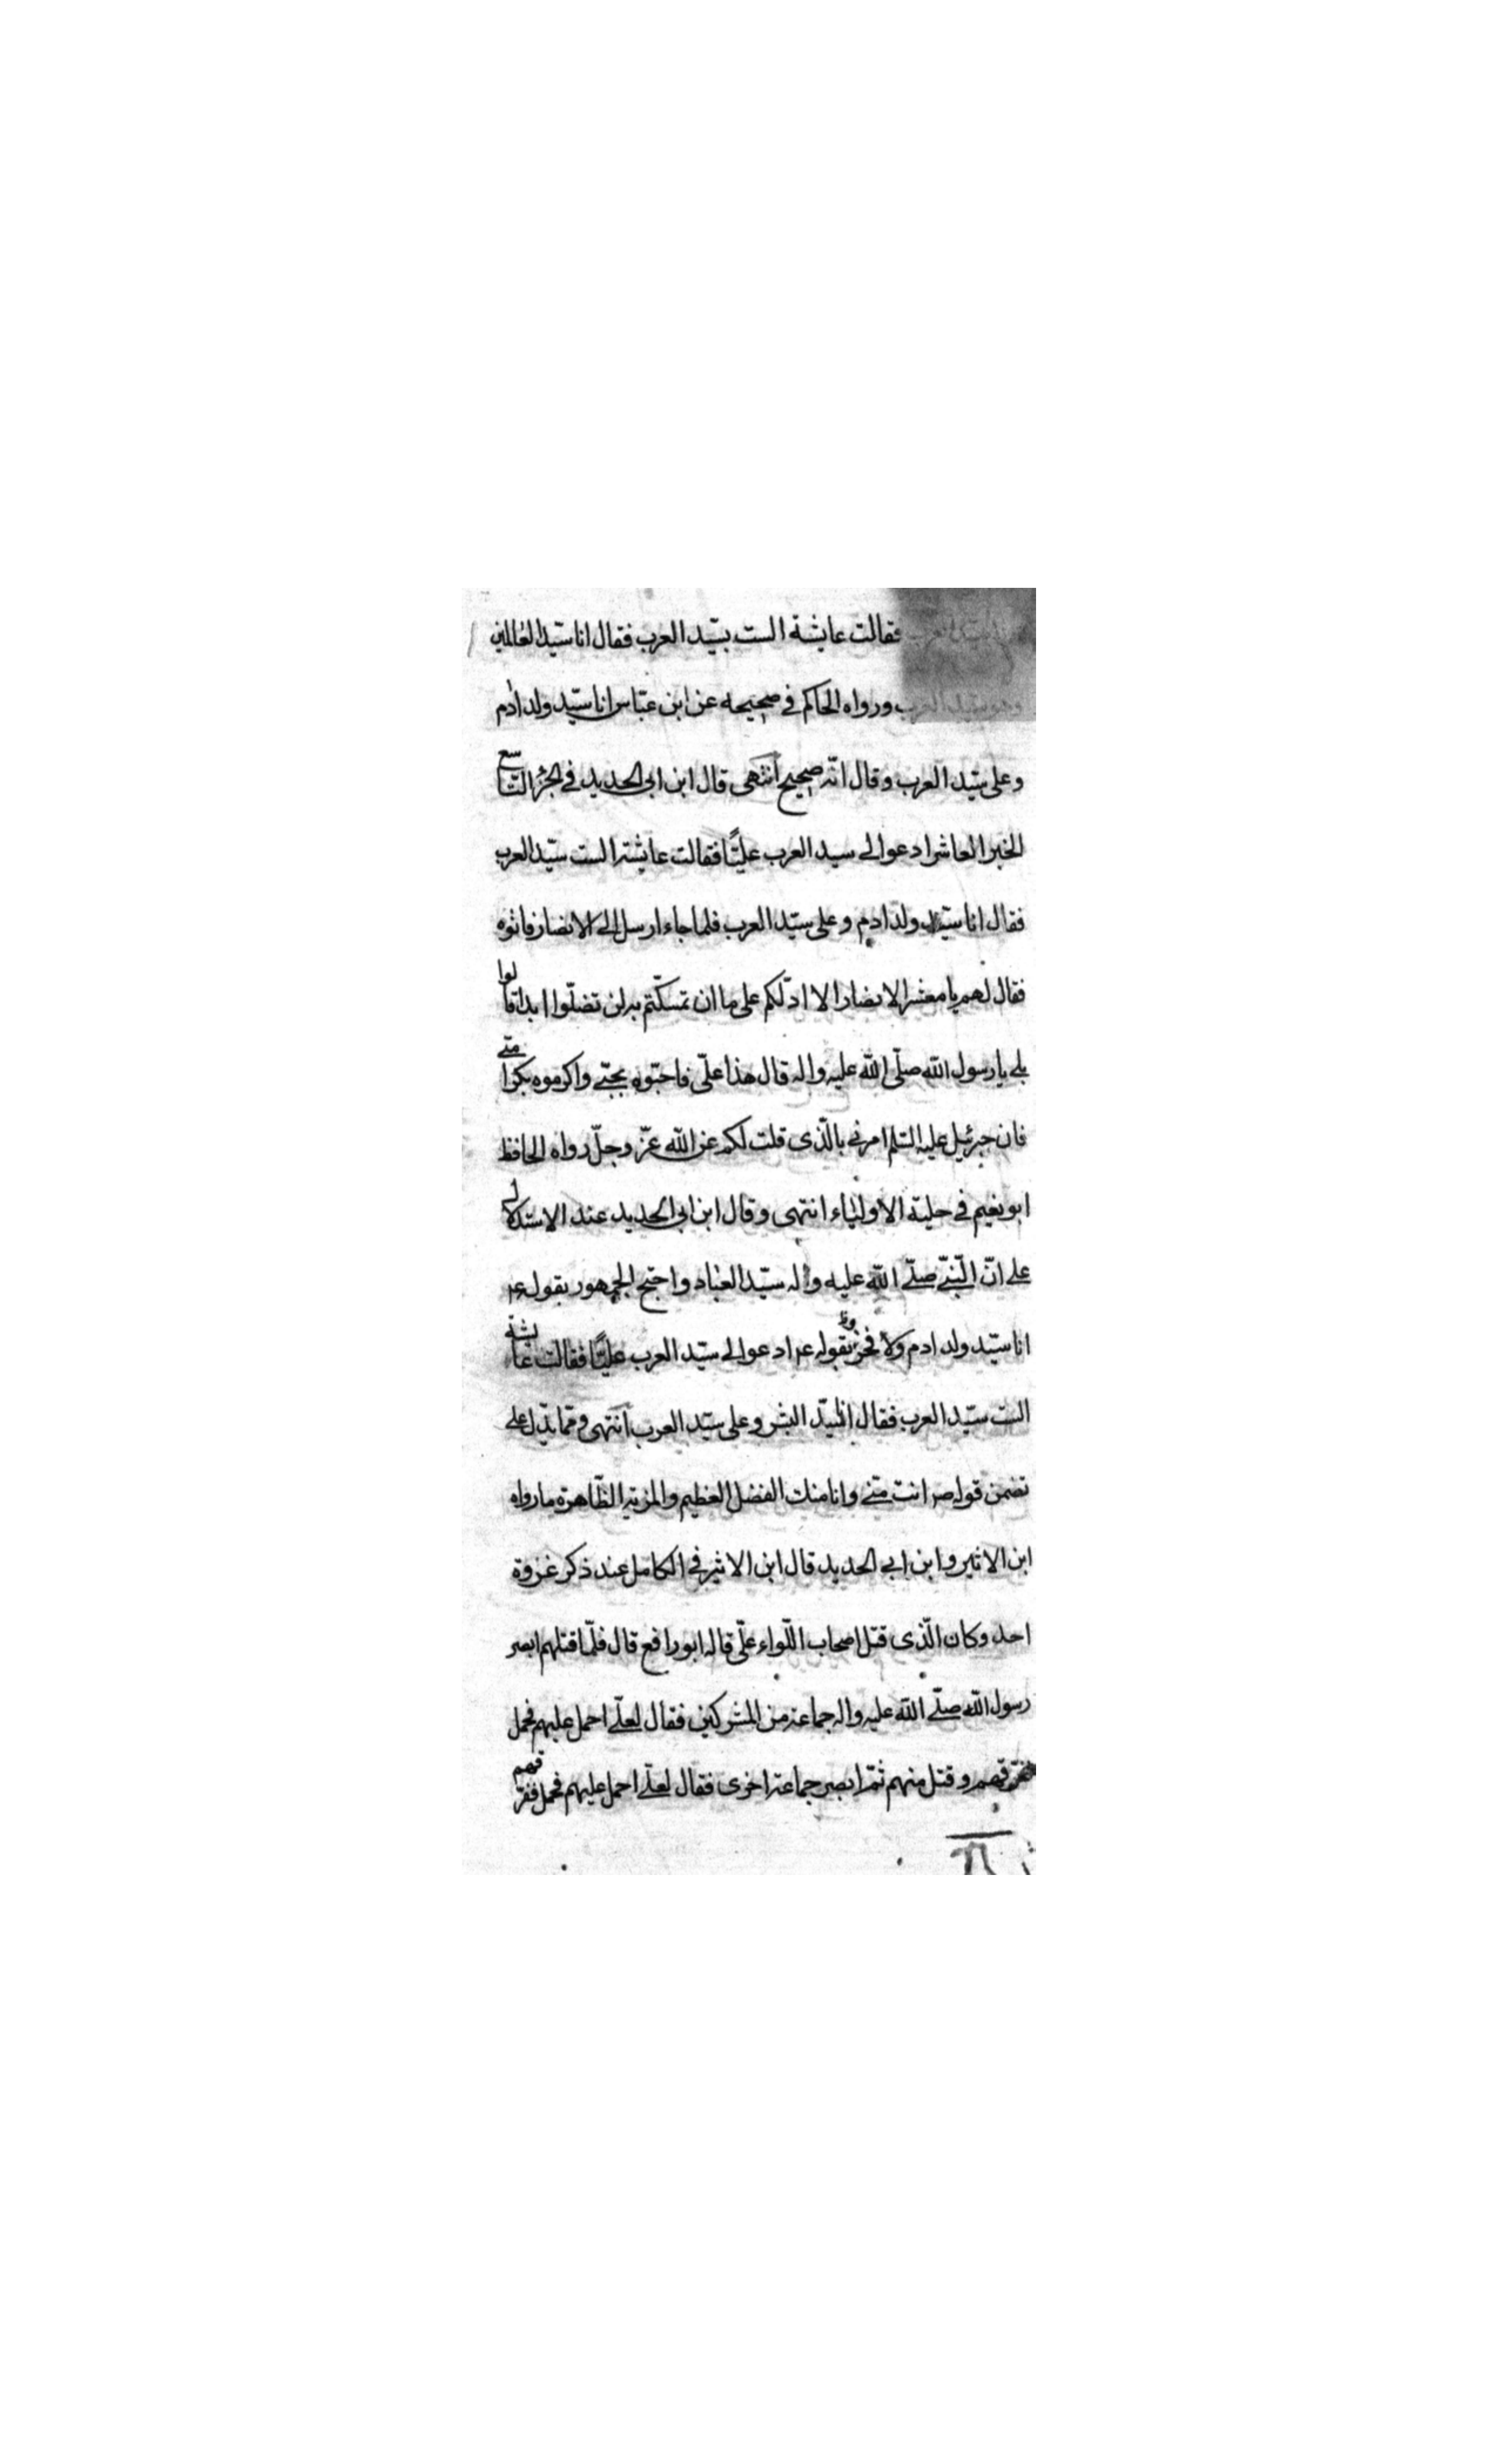 هذا سيد العرب فقالت عايشة الست بسيّد العرب فقال انا سيّد العالمين
وهو سيد العرب ورواه الحاكم في صحيحه عن ابن عبّاس انا سيّد ولد ادم
وعلى سيّد العرب وقال انّه صحيح انتهى قال ابن ابي الحديد في الجزء التاسع
الخبر العاشر ادعوا لي سيد العرب عليّا فقالت عايشة الست سيّد العرب
فقال انا سيّد ولد ادم وعلى سيّد العرب فلما جاء ارسل الى الانصار فاتوه
فقال لهم يا معشر الانصار الا ادلّكم على ما ان تمسكّتم به لن تضلّوا ابدا قالوا
بلى يا رسول الله صلّى الله عليه واله قال هذا علّى فاحبّوه بحبّي واكرموه بكرامتي
فان جبرئيل عليه السّلم امرني بالّذى قلت لكم عن الله عزّ وجلّ رواه الحافظ
ابو نعيم في حلية الاولياء انتهى وقال ابن ابي الحديد عند الاستدلال
على انّ النّبيّ صلّى الله عليه واله سيّد العباد واحتج الجمهور بقوله ع
انا سيّد ولد ادم ولا فخر وبقوله ع ادعوا لي سيّد العرب عليّا فقالت عايشة
الست سيّد العرب فقال انا سيّد البشر وعلى سيّد العرب انتهى وممّا يدّل على
تضمن قوله ص انت منّي وانا منك الفضل العظيم والمزيّة الظّاهرة ما رواه
ابن الاثير وابن ابي الحديد قال ابن الاثير في الكامل عند ذكر غزوة
احد وكان الّذى قتل اصحاب اللّواء علّى قاله ابو رافع قال فلّما قتلهم ابصر
رسول الله صلّى الله عليه واله جماعة من المشركين فقال لعلّي احمل عليهم فحمل
ففرّقهم وقتل منهم ثمّ ابصر جماعة اخرى فقال لعلّي احمل عليهم فحمل ففرّقهم